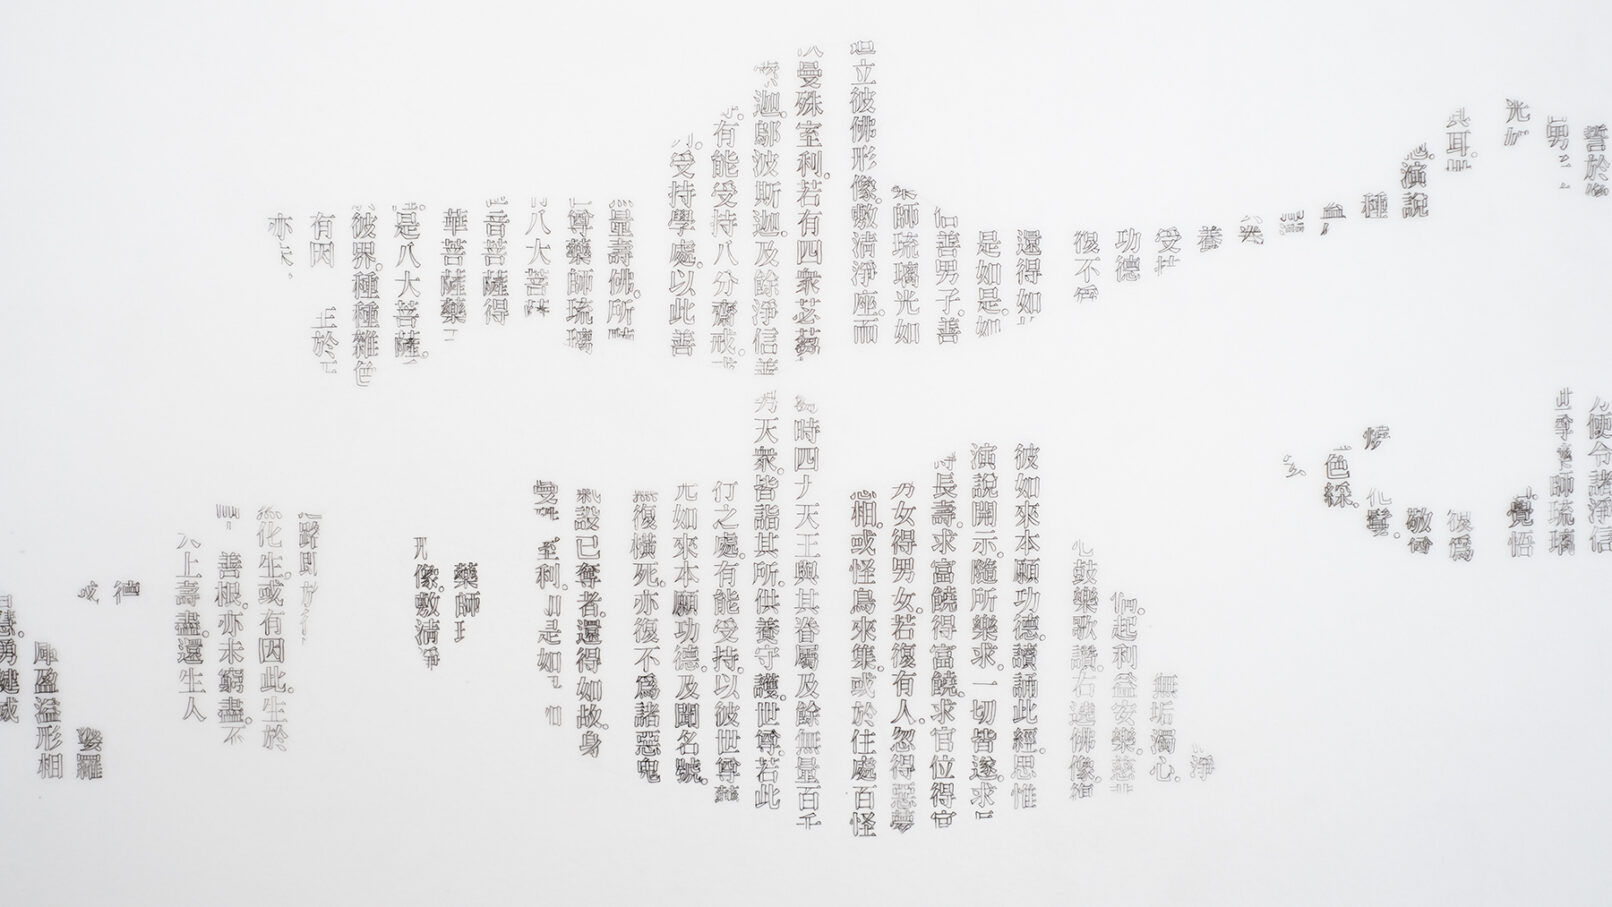 誓於
男
光
耳
演說
種
養
受
功德
復不
還得如
是如是如
善男子善
師琉璃光如
立彼佛形像敷清淨座而
曼殊室利。若有四衆苾芻
迦。鄔波斯迦。及餘淨信善
有能受持八分齋戒。
受持學處。以此善
量壽佛。所
尊藥師琉璃
八大菩薩
音菩薩得
華菩薩藥
是八大菩薩。
彼界。種種雜色
有因 王於
亦未
便令諸淨信
師琉璃
覺悟
復爲
敬
鬘。
色綵。
淨
無垢濁心。
起利益安樂。慈
鼓樂歌讚。右遶佛像。復
彼如來本願功德。讀誦此經。思惟
演說開示。隨所樂求。一切皆遂。求
長壽。求富饒得富饒。求官位得官
女得男女。若復有人。忽得惡夢
惡相。或怪鳥來集。或於住處百怪
時四大天王與其眷屬及餘無量百千
天衆。皆詣其所。供養守護。世尊。若此
行之處。有能受持。以彼世尊藥
如來本願功德。及聞名號。
復橫死。亦復不爲諸惡鬼
設已奪者。還得如故。身
曼 室利。 是如
藥師
形像。敷清淨
路即
化生。或有因此。生於
善根。亦未窮盡。不
上壽盡。還生人
或
羅
盈溢形相
勇健威